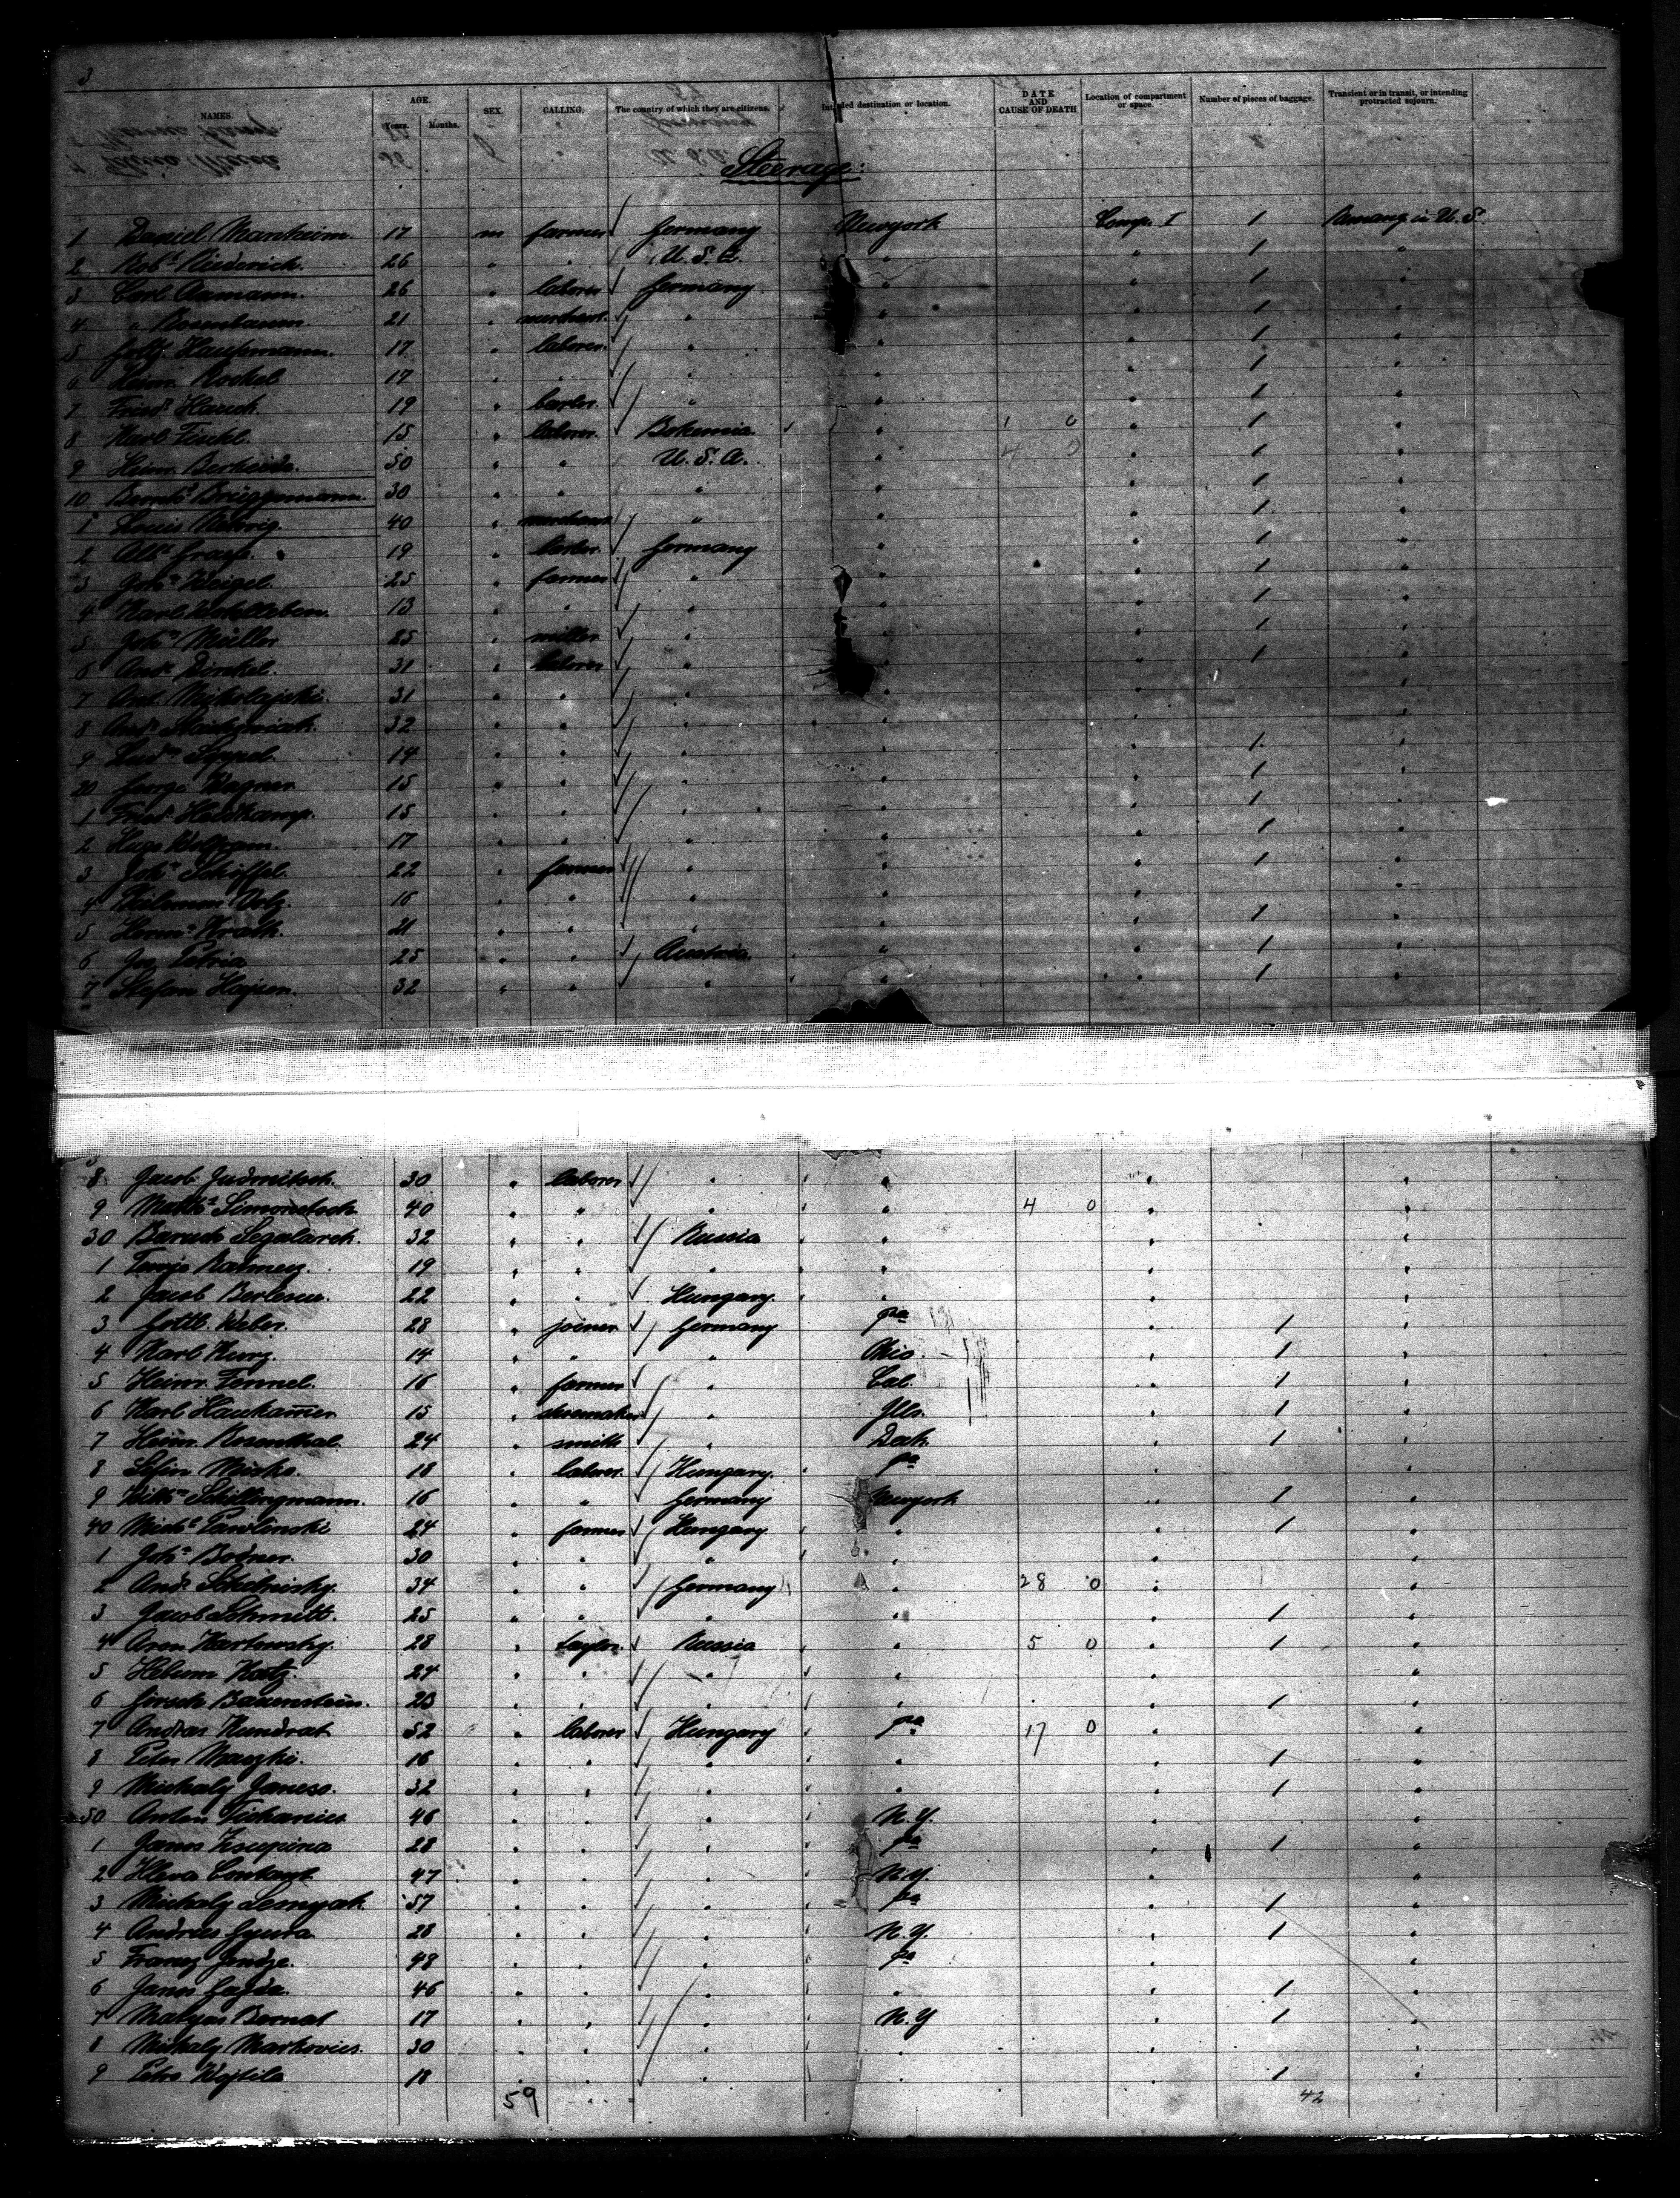 3
NAMES. AGE. SEX. CALLING. The country of which they are citizens. Intended destination or location. DATE AND CAUSE OF DEATH Location of compartment or space. Number of pieces of baggage. Transient or in transit, or intending protracted sojourn.
Years. Months.
Steerage:
1 Daniel Manheim 17 m farmer Germany Newyork Comp. I 1 Remang in U. S.
2 Robt Diederich 26 " " U. S. A. " " 1 "
3 Carl Aumann 26 " laborer Germany " " 1
4 " Rosenbaum 21 " merchant " " " 1 "
5 Hauptmann 17 " laborer " " " 1 "
6 Heinr. Rockel 17 " " " " " 1 "
7 Friedr. Hauck 19 " barber " " " 1 "
8 Karl Fischl 15 " laborer Bohemia " 1 0 " 1 "
9 Heinr. Berheide 50 " " U. S. A. " 4 0 " 1 "
10 Bernhd Brüggemann 30 " " " " " 1 "
1 Louis Rehrig 40 " merchant " " " 1 "
2 Albt Graefe 19 " barber Germany " " 1 "
3 Johs Weigel 25 " farmer " " " 1 "
4 Karl 13 " " " " " 1 "
5 Johs Müller 25 " miller " " " 1 "
6 Andr. Dinkel 31 " laborer " " " 1 "
7 Ant. Mikolajski 31 " " " " " "
8 Andr. 32 " " " " " "
9 Ludw. Sippel 14 " " " " " 1 "
20 George Wagner 15 " " " " " 1 "
1 Friedr. Heidkamp 15 " " " " " 1 "
2 Hugo Wolfram 17 " " " " " 1 "
3 Johs Schiffel 22 " farmer " " " 1 "
4 Volz 16 " " " " " "
5 Herm. Krath 21 " " " " " 1 "
6 Jos. Petria 25 " " Austria " " 1 "
7 Stefan Hajsen 32 " " " " " 1 "
8 Jacob Judnitsch 30 " laborer " " " "
9 Mathe Simonitsch 40 " " " " 4 0 " "
30 Baruch Segalarch 32 " " Russia " " "
1 19 " " " " " "
2 Jacob Berlener 22 " " Hungary " " "
3 Gottl. Weber 28 " joiner Germany pa " 1 "
4 Karl Kurz 14 " " " Ohio " 1 "
5 Heinr. Fennel 16 " farmer " Cal. " 1 "
6 Karl Haukamer 15 " shoemaker " Ills. " 1 "
7 Heinr. Rosenthal 24 " smith " Dak. " 1 "
8 Misko 18 " laborer Hungary pa " "
9 Wilhm Schillingmann 16 " " Germany Newyork " 1 "
40 Michl Pawlinski 24 " farmer Hungary " " 1 "
1 Johs Bodner 30 " " " " " "
2 Andr. 34 " " Germany " 28 0 " "
3 Jacob Schmitt 25 " " " " " 1 "
4 Aron Karlowsky 28 " taylor Russia " 5 0 " 1 "
5 Katz 24 " " " " " "
6 Hirsch Bauernstein 23 " " " " " 1 "
7 Andras Kundrat 52 " laborer Hungary pa 17 0 " "
8 Peter Maczki 16 " " " " " 1 "
9 Michaly Janeso 32 " " " " " 1 "
50 Anton Tichanics 46 " " " N. Y. " "
1 Janos 28 " " " pa " 1 "
2 47 " " " N. Y. " "
3 Michaly Lesnyak 57 " " " pa " 1 "
4 Andreas Gyura 28 " " " N. Y. " 1 "
5 Franz 48 " " " pa " "
6 Janos Gajda 46 " " " " " 1 "
7 Matyas Bernat 17 " " " N. Y " 1 "
8 Michaly Markovics 30 " " " " " "
9 Petro Wojtila 18 " " " " " 1 "
59 42